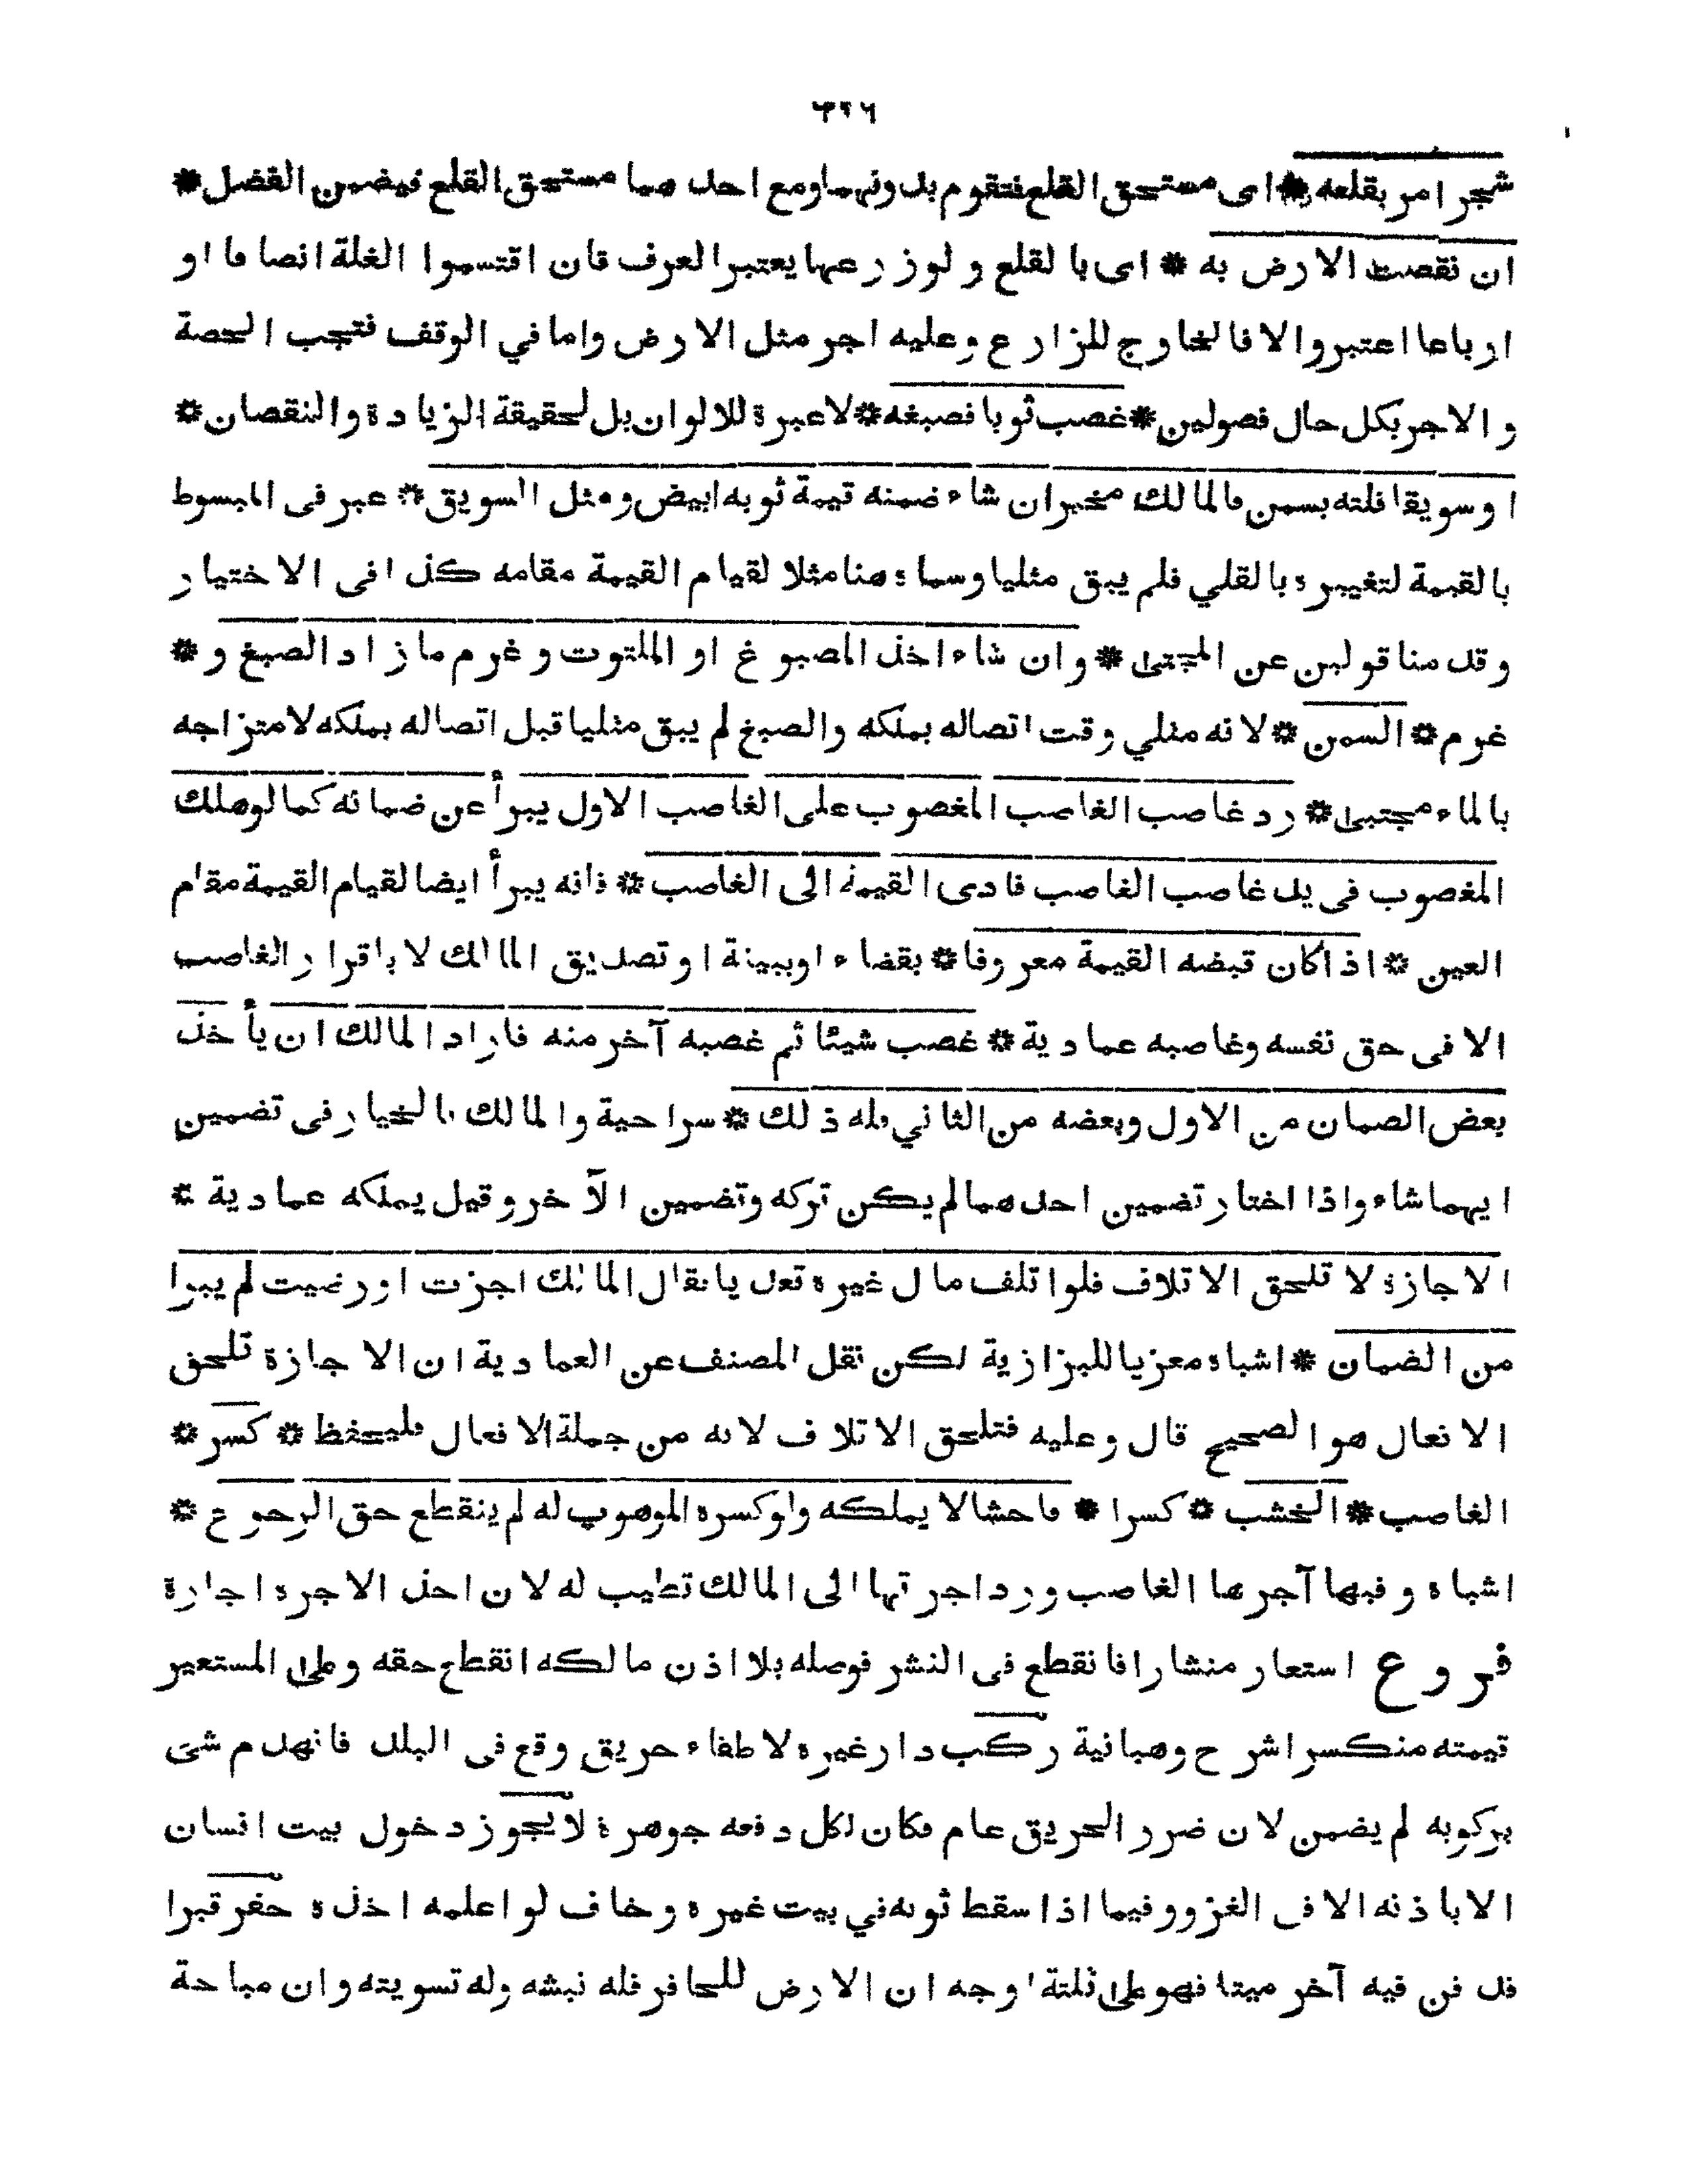 ٦٢٦
شجر امر بقلعه * اى مستحق القلع فتقوم بدونهما ومع احد هما مستحق القلع فيضمن الفضل *
ان نقصت الارض به * اى بالقلع ولو زرعها يعتبر العرف فان اقتسموا الغلة انصافا او
ارباعا اعتبر والا فالخارج للزارع وعليه اجر مثل الارض واما في الوقف فتجب الحصة
والاجر بكل حال فصولين * غصب ثوبا فصبغه * لا عبرة للالوان بل لحقيقة الزيادة والنقصان *
او سويقا فلته بسمن فالمالك مخير ان شاء ضمنه قيمة ثوبه ابيض ومثل السويق * عبر فى المبسوط
بالقيمة لتغييره بالقلي فلم يبق مثليا وسماه هنا مثلا لقيام القيمة مقامه كذا فى الاختيار
وقد منا قولين عن المجتبى * وان شاء اخذ المصبوغ او الملتوت وغرم ما زاد الصبغ و *
غرم * السمن * لانه مثلي وقت اتصاله بملكه والصبغ لم يبق مثليا قبل اتصاله بملكه لامتزاجه
بالماء مجتبى * رد غاصب الغاصب المغصوب على الغاصب الاول يبرأ عن ضمانه كما لو هلك
المغصوب فى يد غاصب الغاصب فادى القيمة الى الغاصب * فانه يبرأ ايضا لقيام القيمة مقام
العين * اذا كان قبضه القيمة معروفا * بقضاء او ببينة او تصديق المالك لا باقرار الغاصب
الا فى حق نفسه وغاصبه عمادية * غصب شيئا ثم غصبه آخر منه فاراد المالك ان يأخذ
بعض الضمان من الاول وبعضه من الثاني فله ذلك * سراجية والمالك بالخيار فى تضمين
ايهما شاء واذا اختار تضمين احدهما لم يكن تركه وتضمين الآخر وقيل يملكه عمادية *
الاجازة لا تلحق الاتلاف فلو اتلف مال غيره تعد يا فقال المالك اجزت او رضيت لم يبرا
من الضمان * اشباه معزيا للبزازية لكن نقل المصنف عن العمادية ان الاجازة تلحق
الافعال هو الصحيح قال وعليه فتلحق الاتلاف لانه من جملة الافعال فليحفظ * كسر *
الغاصب * الخشب * كسرا * فاحشا لا يملكه ولو كسره الموهوب له لم ينقطع حق الرجوع *
اشباه وفيها آجرها الغاصب ورد اجرتها الى المالك تطيب له لان اخذ الاجره اجازة
فروع استعار منشارا فانقطع فى النشر فوصله بلا اذن مالكه انقطع حقه وعلى المستعير
قيمته منكسرا شرح وهبانية ركب دار غيره لاطفاء حريق وقع فى البلد فانهدم شئ
بركوبه لم يضمن لان ضرر الحريق عام فكان لكل دفعه جوهرة لا يجوز دخول بيت انسان
الا باذنه الا فى الغزو وفيما اذا سقط ثوبه في بيت غيره وخاف لو اعلمه اخذه حفر قبرا
فد فن فيه آخر ميتا فهو على ثلثة اوجه ان الارض للحافر فله نبشه وله تسويته وان مباحة